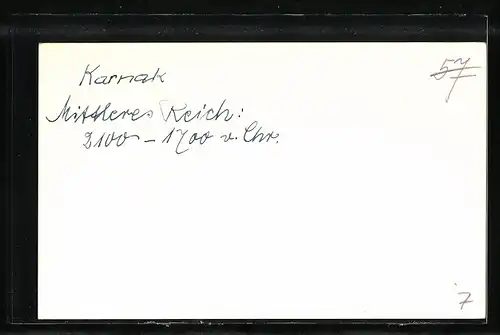 Karnak
57
Mittleres Reich:
2100 – 1700 v. Chr.
7